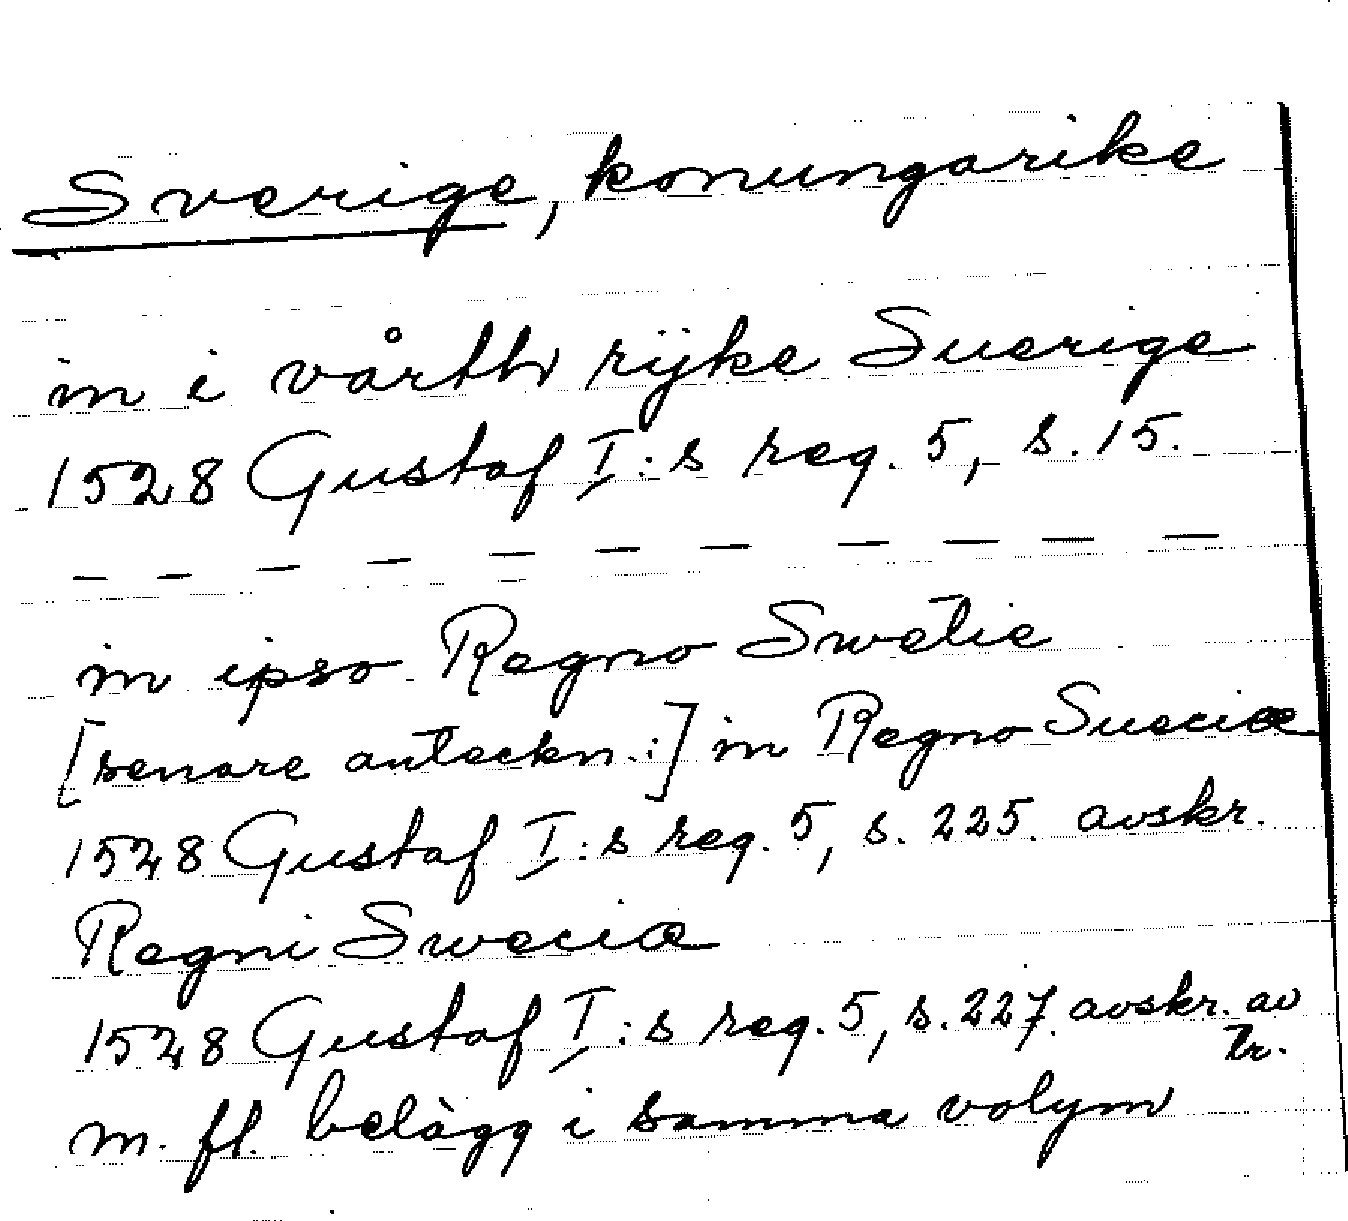 Sverige, konungarike
in i vårtth rijke Suerige
1528 Gustaf I:s reg. 5, s. 15.
— — — — — — — — — — —
in ipso Regno Swetie
[senare anteckn.:] in Regno Sueciæ
1528 Gustaf I:s reg. 5, s. 225. avskr.
Regni Sweciæ
1528 Gustaf I:s reg. 5, s. 227. avskr. av
tr.
m. fl. belägg i samma volym